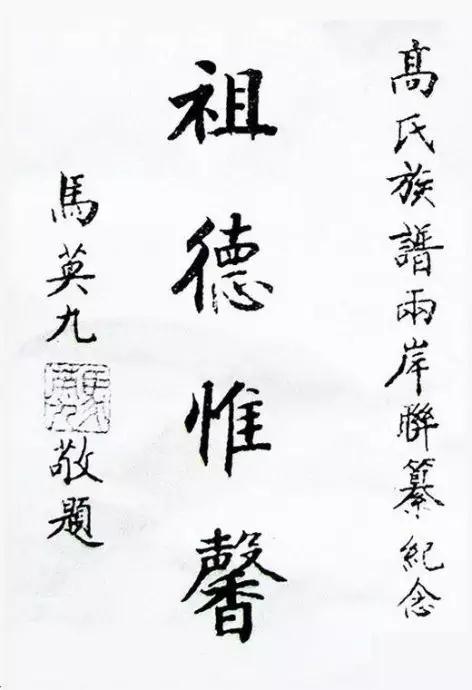 髙氏族譜兩岸聯纂紀念
祖德惟馨
馬英九
敬題